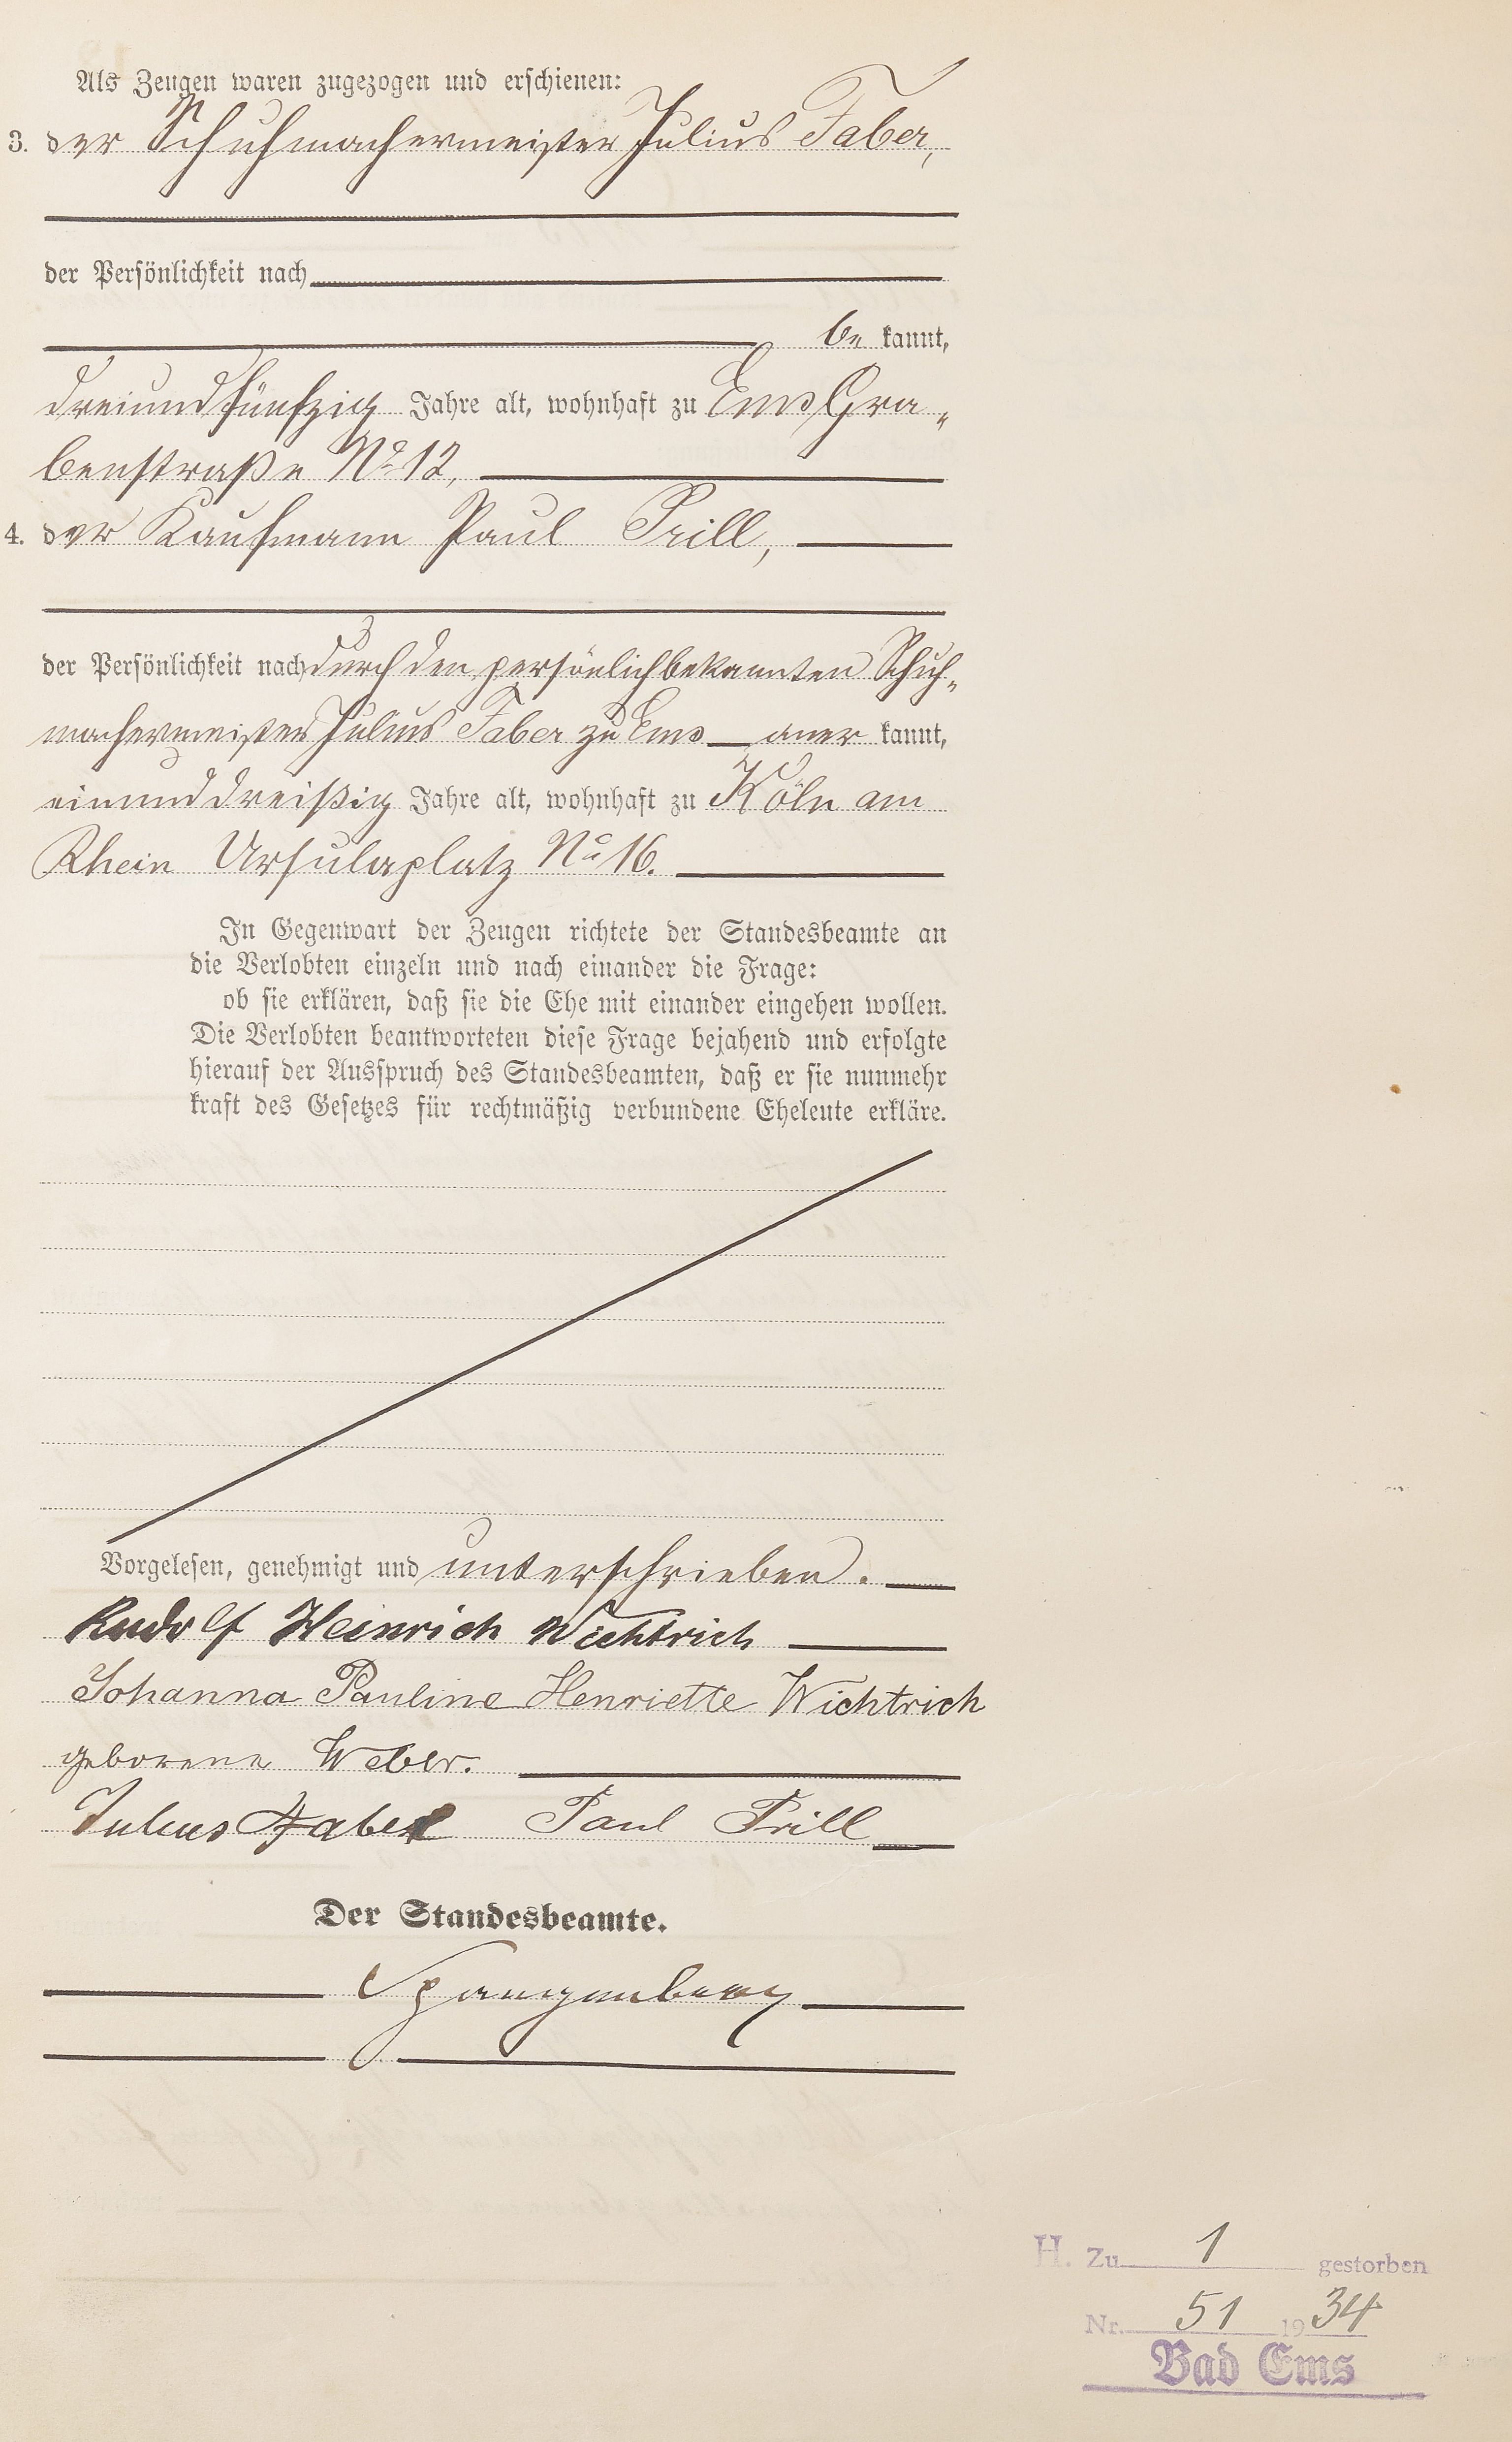 Als Zeugen waren zugezogen und erschienen:
3. der Schuhmachermeister Julius Faber,
der Persönlichkeit nach
be kannt,
dreiundfünfzig Jahre alt, wohnhaft zu Ems Gra-
benstraße No 12,
4. der Kaufmann Paul Prill,
der Persönlichkeit nach durch den persönlich bekannten Schuh-
machermeister Julius Faber zu Ems aner kannt,
einunddreißig Jahre alt, wohnhaft zu Köln am
Rhein Ursulaplatz No 16.
In Gegenwart der Zeugen richtete der Standesbeamte an
die Verlobten einzeln und nach einander die Frage:
ob sie erklären, daß sie die Ehe mit einander eingehen wollen.
Die Verlobten beantworteten diese Frage bejahend und erfolgte
hierauf der Ausspruch des Standesbeamten, daß er sie nunmehr
kraft des Gesetzes für rechtmäßig verbundene Eheleute erkläre.
Vorgelesen, genehmigt und unterschrieben.
Rudolf Heinrich Wichtrich
Johanna Pauline Henriette Wichtrich
geborene Weber.
Julius Faber Paul Prill
Der Standesbeamte.
Spangenberg
H. Zu 1 gestorben
Nr. 51 1934
Bad Ems